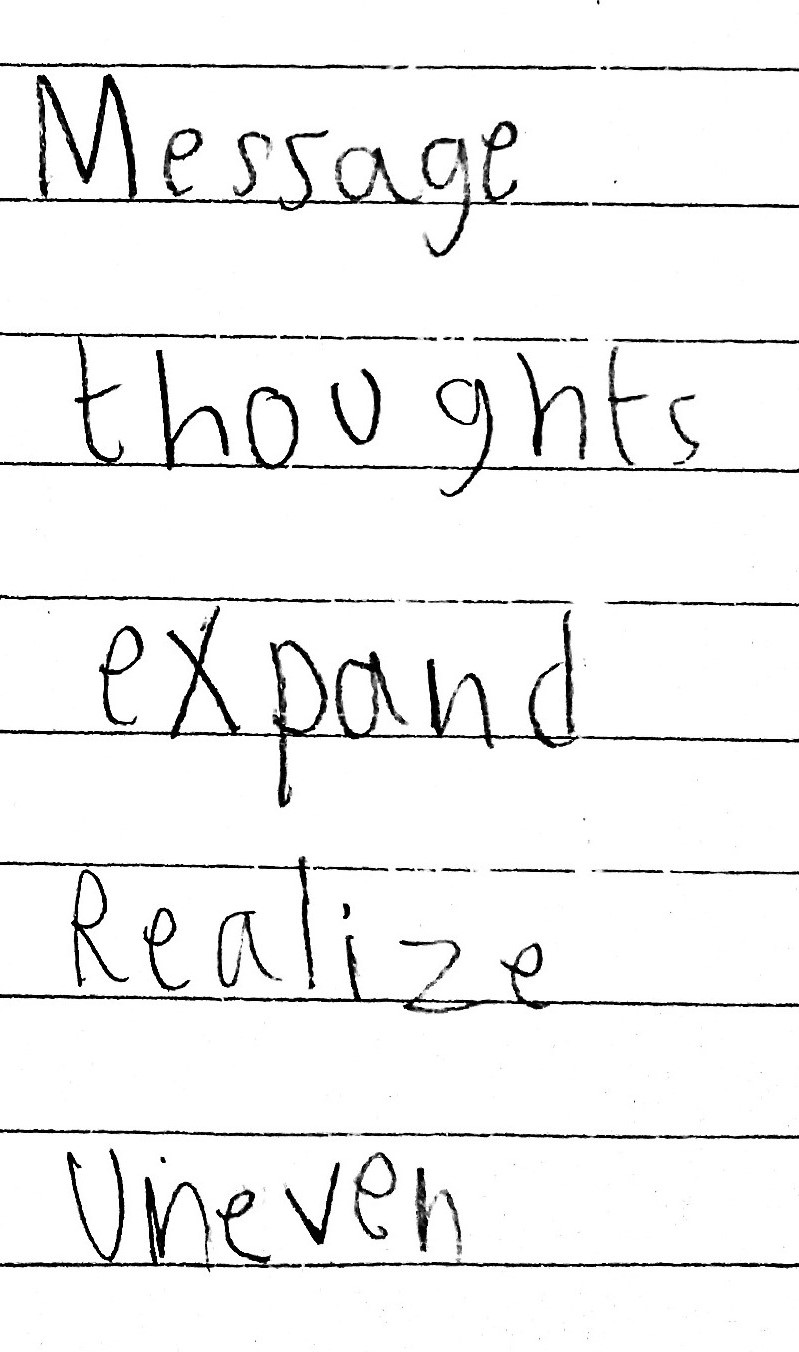 Message
thoughts
expand
Realize
Uneven